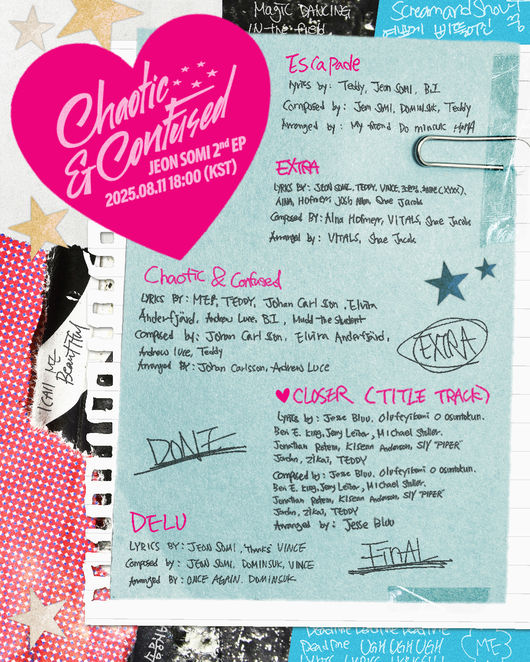 MAGIC DANCING
IN-the field
ScreamandShout
Chaotic
& Confused
JEON SOMI 2nd EP
2025.08.11 18:00 (KST)
Escapade
Lyrics by: Teddy, Jeon SOMI, B.I
Composed by: Jeon SOMI, DOMINSUK, Teddy
Arranged by: My friend Do minsuk HAHA
EXTRA
LYRICS BY: JEON SOMI, TEDDY, VINCE,
AINA, Hofmeyr, Josh Allan, Shae Jacobs
Composed BY: Aina Hofmeyr, VITALS, Shae Jacobs
Arranged by: VITALS, Shae Jacobs
Chaotic & Confused
LYRICS BY: MEP, TEDDY, Johan Carlsson, Elvira
Anderfjard, Andrew Luce, B.I, Mudd the Student
Composed by: Johan Carlsson, Elvira Anderfjard,
Andrew Luce, Teddy
Arranged BY: Johan Carlsson, Andrew Luce
I CAll ME
BeautIful
EXTRA
♥CLOSER (TITLE TRACK)
Lyrics by: Jesse Bluu, Olufeyikemi O Osuntokun.
Ben E. King, Jerry Leiber, Michael Stoller.
Jonathan Rotem, Kisean Anderson, SIY "PIPER"
Jordin, Zikai, TEDDY
Composed by: Jesse Bluu, Olufeyikemi O Osuntokun.
Ben E. King, Jerry Leiber, Michael Stoller.
Jonathan Rotem, Kisean Anderson, SIY "PIPER"
Jordin, Zikai, TEDDY
Arranged by: Jesse Bluu
DONE
DELU
LYRICS BY: JEON SOMI, "thanks" VINCE
Composed by: JEON SOMI, DOMINSUK, VINCE
Arranged BY: ONCE AGAIN. DOMINSUK
FinAL
Deadline Deadline Deadline
Deadline UGH UGH UGH
(ME)